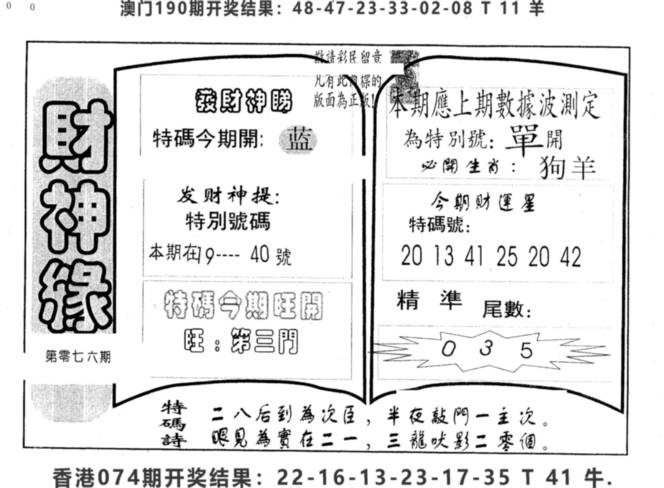 澳门190期开奖结果：48-47-23-33-02-08 T 11 羊
敬請彩民留意
凡有此圖樣的
版面為正版！
財神緣
第零七六期
發財神勝
特碼今期開: 蓝
发财神提:
特別號碼
本期在9----40號
特碼今期旺開
旺:第三門
本期應上期數據波測定
為特別號: 單開
必開生肖: 狗羊
今期財運星
特碼號:
20 13 41 25 20 42
精準 尾數:
0 3 5
特碼詩
二八后到為次臣，半夜敲門一主次。
眼見為實在二一，三龍吠影二零個。
香港074期开奖结果：22-16-13-23-17-35 T 41 牛.